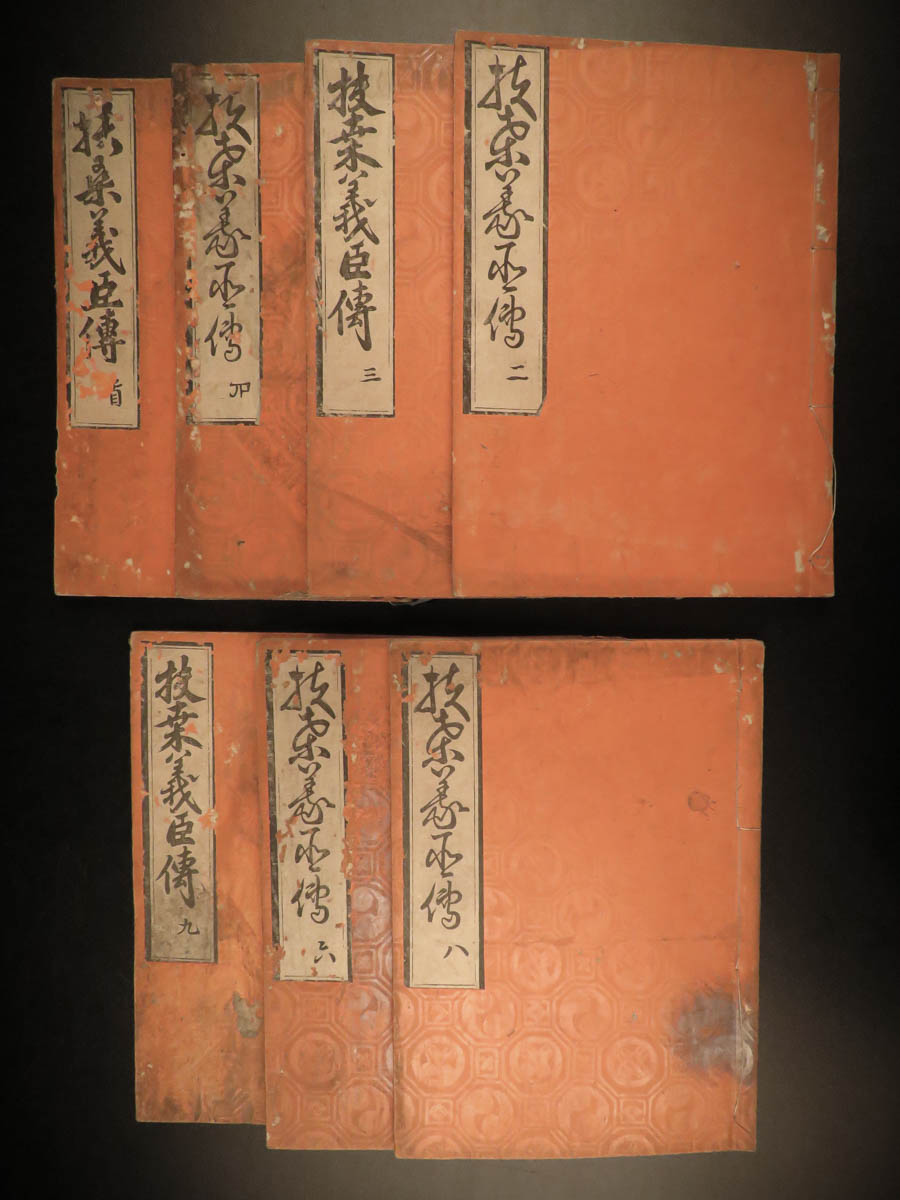 扶桒義臣傳
二
扶桒義臣傳
三
扶桒義臣傳
扶桑義臣傳
首
扶桒義臣傳
八
扶桒義臣傳
六
扶桒義臣傳
九